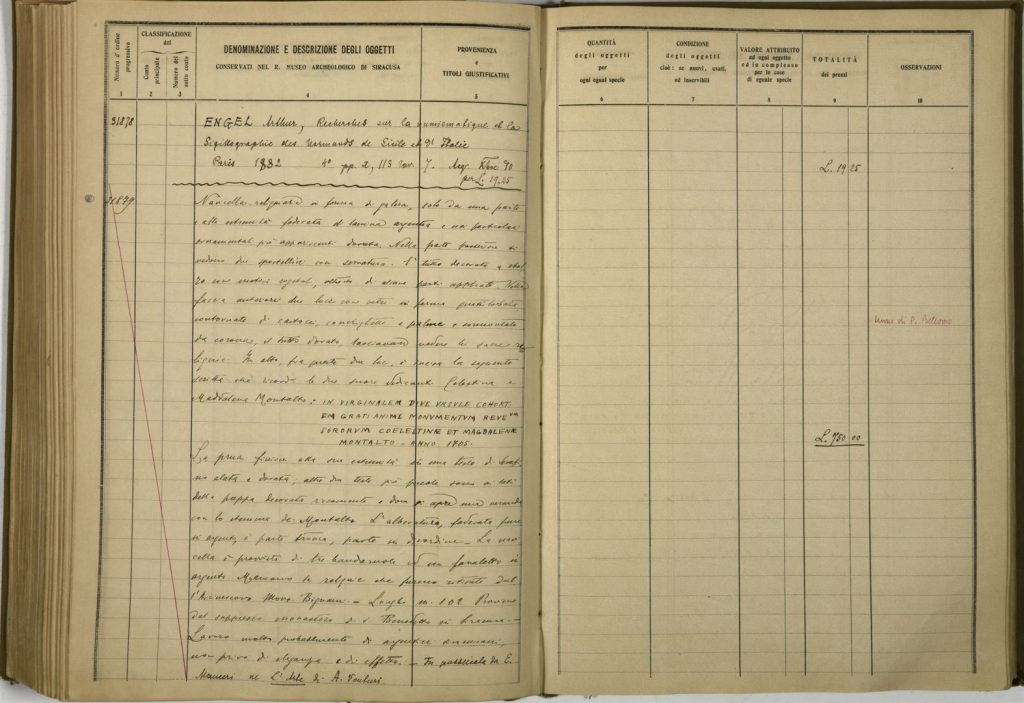 Numero d'ordine progressivo
CLASSIFICAZIONE
del
Conto principale
Numero del sotto conto
DENOMINAZIONE E DESCRIZIONE DEGLI OGGETTI
CONSERVATI NEL R. MUSEO ARCHEOLOGICO DI SIRACUSA
PROVENIENZA
e
TITOLI GIUSTIFICATIVI
1 2 3 4 5
31878
ENGEL Arthur, Recherches sur la numismatique et la
Sigillographie des Normands de Sicile et d'Italie
Paris 1882 4° pp.
per L. 19.25
31879
Navicella reliquiario in forma di galera, solo da una parte
e alle estremità foderata di lamina argentea e nei particolari
ornamentali più appariscenti dorata. Nella parte posteriore si
vedono due sportellini con serratura. È tutta decorata a
con motivi vegetali,
faccia anteriore due luci con vetro in forma
contornate di cartocci, conchigliette e palme e sormontate
da corona, il tutto dorato, lasciavano vedere le sacre re
liquie. In alto, fra queste due luci, è incisa la seguente
scritta che ricorda le due suore dedicanti Celestina e
Maddalena Montalto: IN VIRGINALEM DIVE VRSULE COHORT.
EM GRATI ANIMI MONVMENTVM REVE VM
SORORVM COELESTINÆ ET MAGDALENÆ
MONTALTO - ANNO 1705.
La prua finisce alla sua estremità in una testa di
alata e dorata, altre due teste più piccole sono ai lati
della poppa decorata riccamente e dove si apre una veranda
con lo stemma dei Montalto. L'alberatura, foderata pure
in argento, è parte tronca, parte in disordine. La navi
cella è provvista di tre banderuole ed un fanaletto in
argento. Mancano le reliquie che furono ritirate dal
l'Arcivescovo Mons. Bignami. - Lungh. m. 1.02 Proviene
dal soppresso monastero di S. Benedetto in Siracusa. -
Lavoro molto probabilmente di argentieri siracusani,
non privo di eleganza e di effetto. - Fu pubblicata da E.
Mauceri ne L'Arte di A. Venturi.
QUANTITÀ
degli oggetti
per
ogni egual specie
CONDIZIONE
degli oggetti
cioè: se nuovi, usati,
od inservibili
VALORE ATTRIBUITO
ad ogni oggetto
ed in complesso
per le cose
di eguale specie
TOTALITÀ
dei prezzi
OSSERVAZIONI
6 7 8 9 10
L. 19.25
L. 750 00